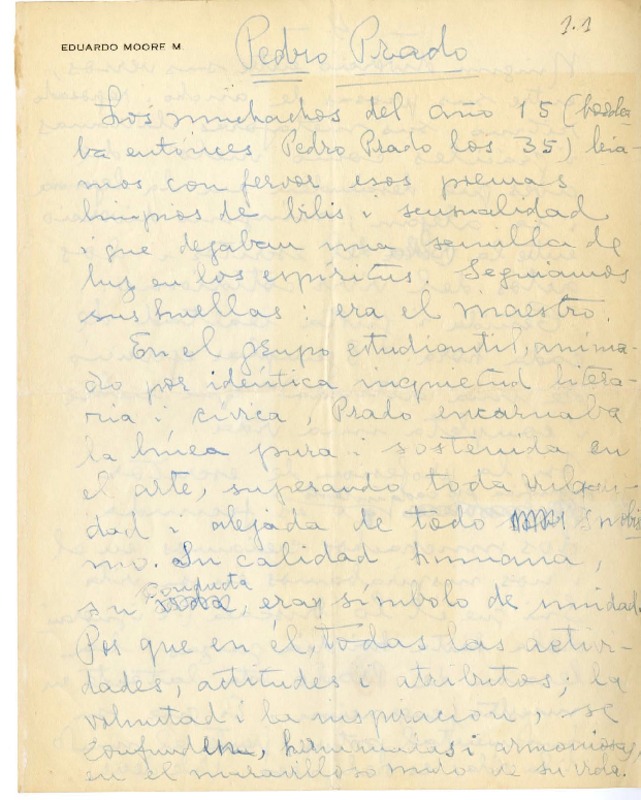 1.1
EDUARDO MOORE M.
Pedro Prado
Los muchachos del año 15 (
ba entónces Pedro Prado los 35) leia-
mos con fervor esos poemas
limpios de bilis i sensualidad
i que dejaban una semilla de
luz en los espíritus. Seguiamos
sus huellas: era el maestro.
En el grupo estudiantil, anima-
do por idéntica inquietud litera-
ria i cívica, Prado encarnaba
la línea pura i sostenida en
el arte, superando toda vulgari-
dad i alejada de todo snobis
mo. Su calidad humana,
su conducta, eran símbolo de unidad.
Por que en él, todas las activi-
dades, actitudes i atributos; la
voluntad i la inspiración, se
confunden, hermanadas i armoniosas,
en el maravilloso nudo de su vida.